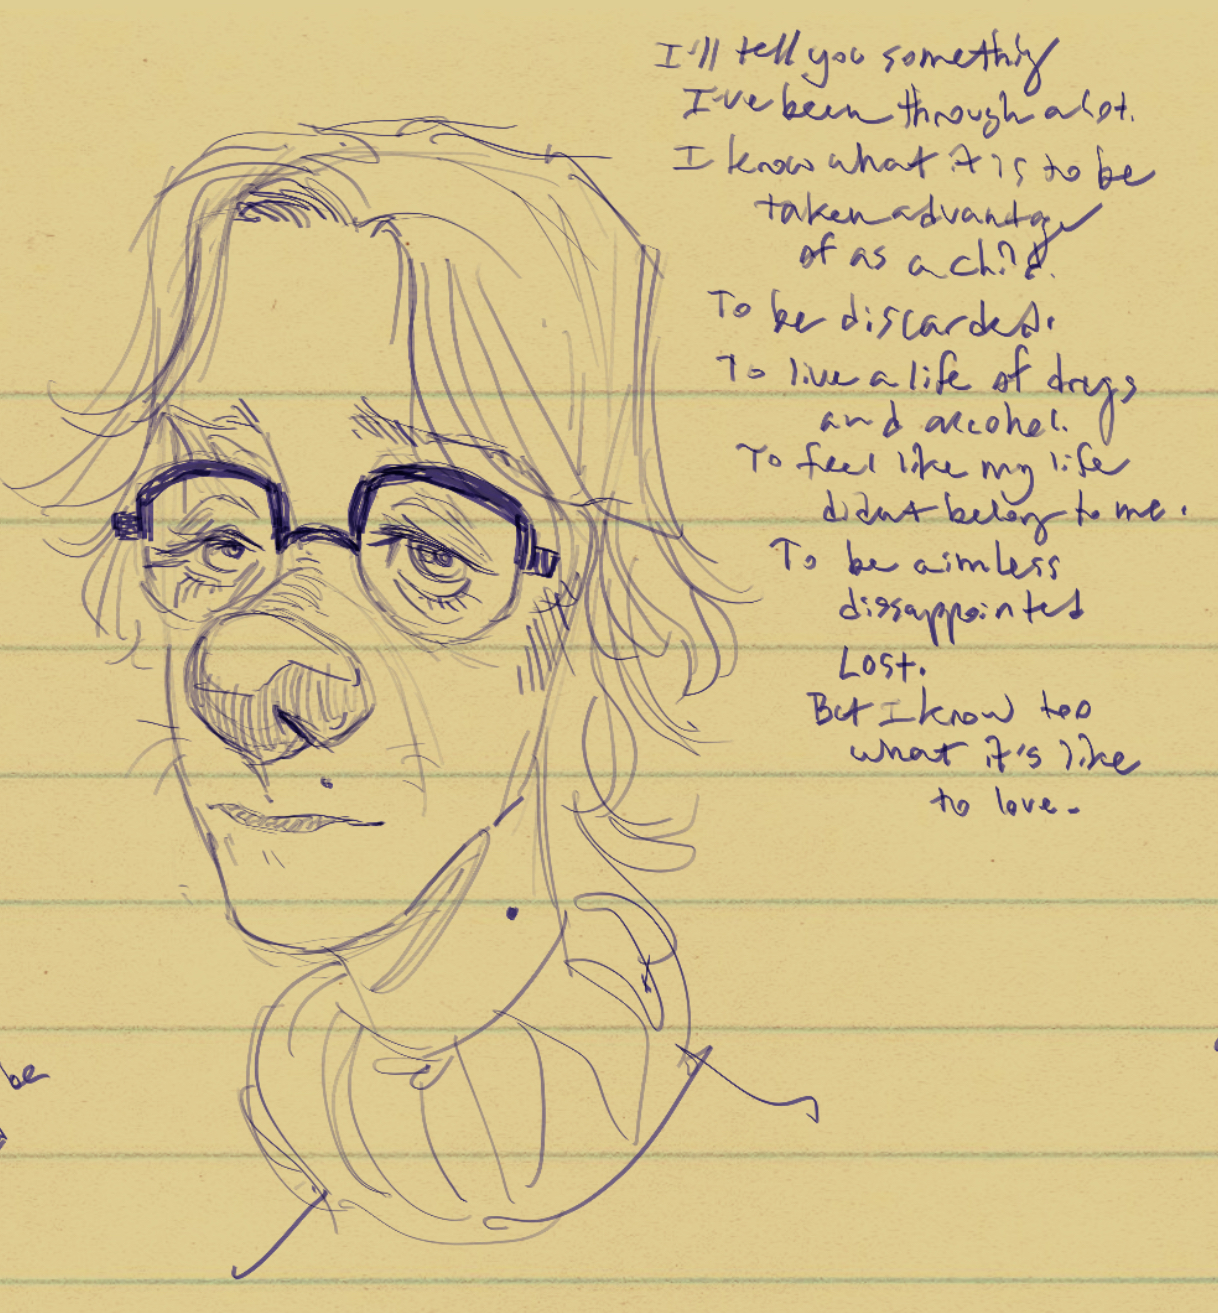 I'll tell you something
I've been through a lot.
I know what it is to be
taken advantage
of as a child.
To be discarded.
To live a life of drugs
and alcohol.
To feel like my life
didn't belong to me.
To be aimless
dissappointed
Lost.
But I know too
what it's like
to love.
be